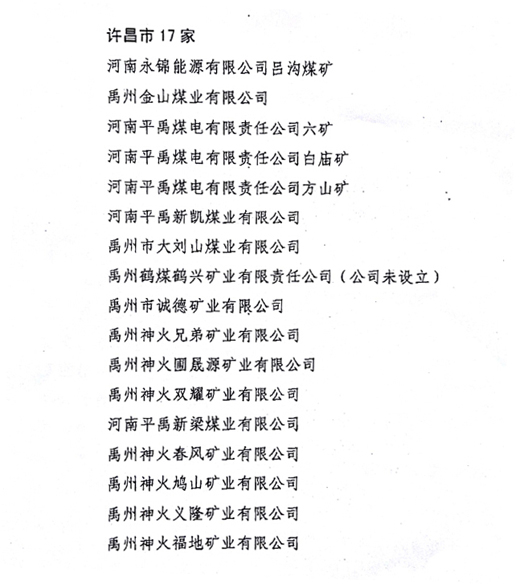 许昌市17家
河南永锦能源有限公司吕沟煤矿
禹州金山煤业有限公司
河南平禹煤电有限责任公司六矿
河南平禹煤电有限责任公司白庙矿
河南平禹煤电有限责任公司方山矿
河南平禹新凯煤业有限公司
禹州市大刘山煤业有限公司
禹州鹤煤鹤兴矿业有限责任公司（公司未设立）
禹州市诚德矿业有限公司
禹州神火兄弟矿业有限公司
禹州神火圃晟源矿业有限公司
禹州神火双耀矿业有限公司
河南平禹新梁煤业有限公司
禹州神火春风矿业有限公司
禹州神火鸠山矿业有限公司
禹州神火义隆矿业有限公司
禹州神火福地矿业有限公司